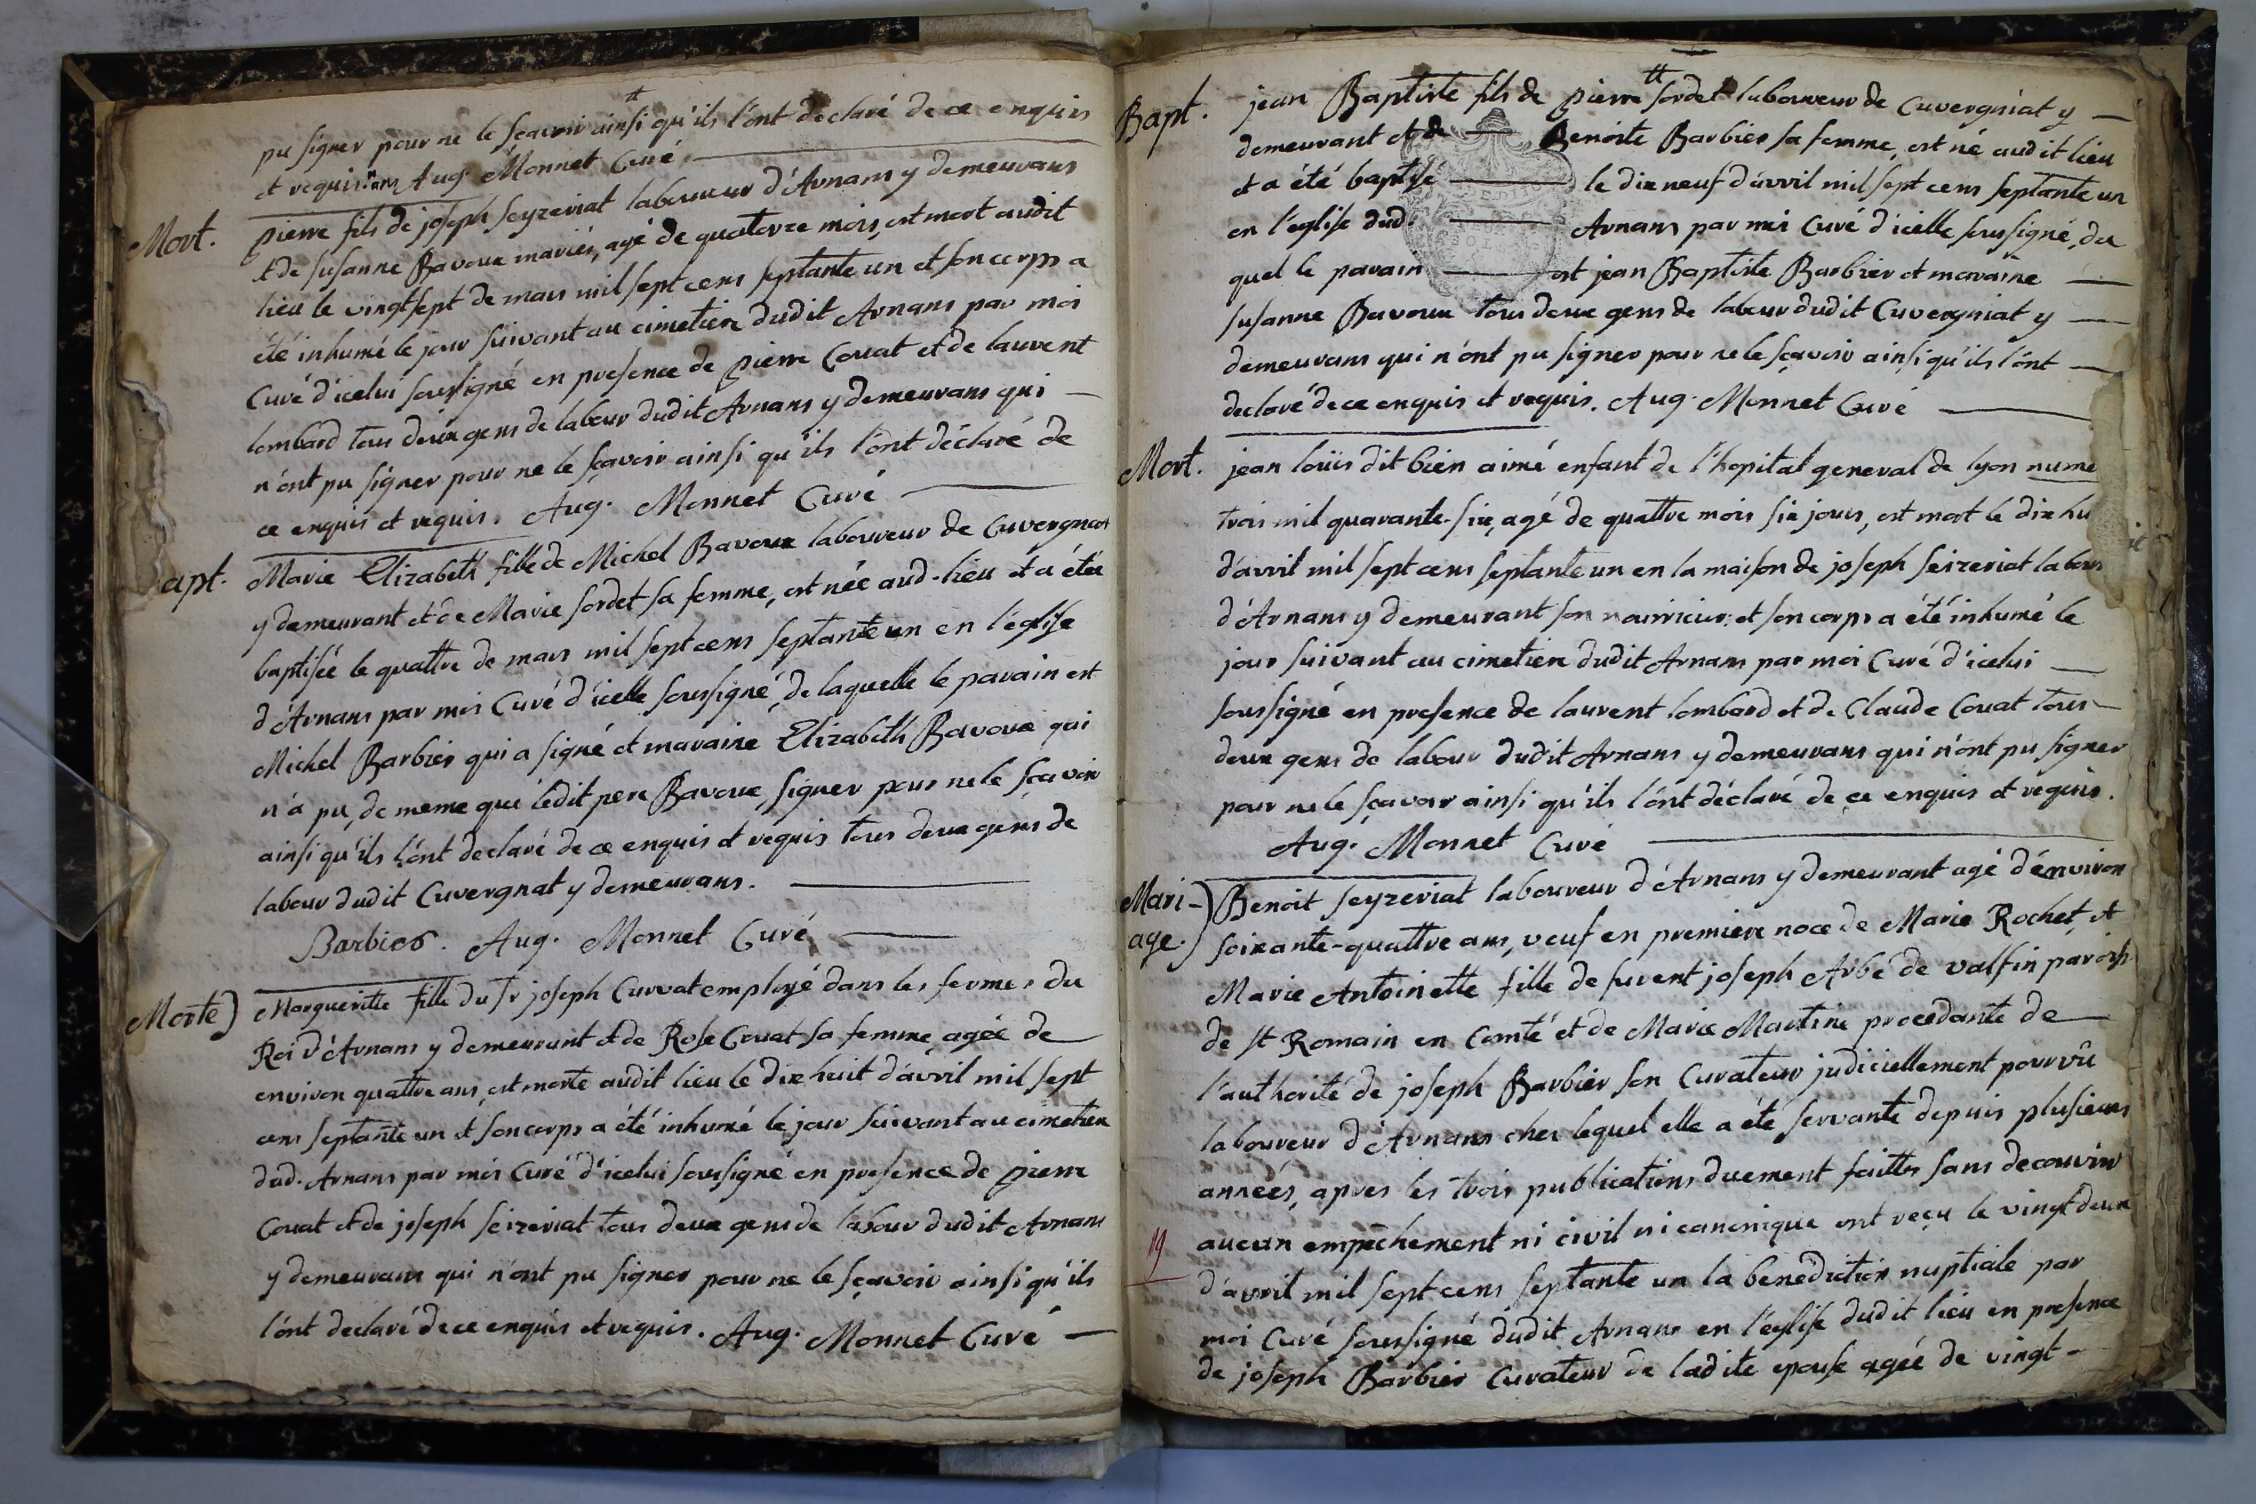 pu signer pour ne le sçavoir ainsi qu'ils l'ont declaré de ce enquis
et requis. Aug. Monnet Curé.
Mort. pierre fils de joseph seyzeriat laboureur d'Arnans y demeurans
et de susanne Bavoux mariés, agé de quatorze mois, est mort audit
lieu le vingt sept de mars mil sept cens septante un et son corps a
été inhumé le jour suivant au cimetiere dudit Arnans par moi
Curé d'icelui soussigné en presence de pierre Couat et de laurent
lombard tous deux gens de labour dudit Arnans y demeurans qui
n'ont pu signer pour ne le sçavoir ainsi qu'ils l'ont déclaré de
ce enquis et requis. Aug. Monnet Curé
apt. Marie Elizabeth fille de Michel Bavoux laboureur de Cuvergnat
y demeurant et de Marie sordet sa femme, est née aud. lieu et a étée
baptisée le quattre de mars mil sept cens septante un en l'église
d'Arnans par moi Curé d'icelle soussigné, de laquelle le parain est
Michel Barbier qui a signé et maraine Elizabeth Bavoux qui
n'a pu, de meme que ledit pere Bavoux, signer pour ne le sçavoir
ainsi qu'ils l'ont declaré de ce enquis et requis tous deux gens de
labour dudit Cuvergnat y demeurans.
Barbier. Aug. Monnet Curé
Morte) Margueritte fille du sr joseph Curvat employé dans les fermes du
Roi d'Arnans y demeurant et de Rose Couat sa femme, agée de
environ quattre ans, est morte audit lieu le dix huit d'avril mil sept
cens septante un et son corps a été inhumé le jour suivant au cimetiere
dud. Arnans par moi Curé d'icelui soussigné en presence de pierre
Couat et de joseph seizeriat tous deux gens de labour dudit Arnans
y demeurans qui n'ont pu signer pour ne le sçavoir ainsi qu'ils
l'ont declaré de ce enquis et requis. Aug. Monnet Curé
Bapt. jean Baptiste fils de pierre sordet laboureur de Cuvergniat y
demeurant et de Benoite Barbier sa femme, est né audit lieu
et a été baptisé le dix neuf d'avril mil sept cens septante un
en l'eglise dud. Arnans par moi Curé d'icelle soussigné, du
quel le parain est jean Baptiste Barbier et maraine
susanne Bavoux tous deux gens de labour dudit Cuvergniat y
demeurans qui n'ont pu signer pour ne le sçavoir ainsi qu'ils l'ont
declaré de ce enquis et requis. Aug. Monnet Curé
Mort. jean loüis dit bien aimé enfant de l'hopital general de lyon nume
trois mil quarante-six, agé de quattre mois six jours, est mort le dix hu
d'avril mil sept cens septante un en la maison de joseph seizeriat labour
d'Arnans y demeurant son nourricier et son corps a été inhumé le
jour suivant au cimetiere dudit Arnans par moi Curé d'icelui
soussigné en presence de laurent lombard et de Claude Couat tous
deux gens de labour dudit Arnans y demeurans qui n'ont pu signer
pour ne le sçavoir ainsi qu'ils l'ont déclaré de ce enquis et requis.
Aug. Monnet Curé
Mari-) Benoit seyzeriat laboureur d'Arnans y demeurant agé d'environ
age.) soixante-quattre ans, veuf en premiere noce de Marie Rochet, et
Marie Antoinette fille de furent joseph Arbé de valfin paroiss
de st Romain en Comté et de Marie Martine procedante de
l'authorité de joseph Barbier son Curateur judiciellement pourvû
laboureur d'Arnans chez lequel elle a été servante depuis plusieurs
années, apres les trois publications duement faittes sans decouvrir
aucun empechement ni civil ni canonique ont reçu le vingt deux
19
d'avril mil sept cens septante un la benediction nuptiale par
moi Curé soussigné dudit Arnans en l'église dudit lieu en presence
de joseph Barbier Curateur de ladite epouse agée de vingt-